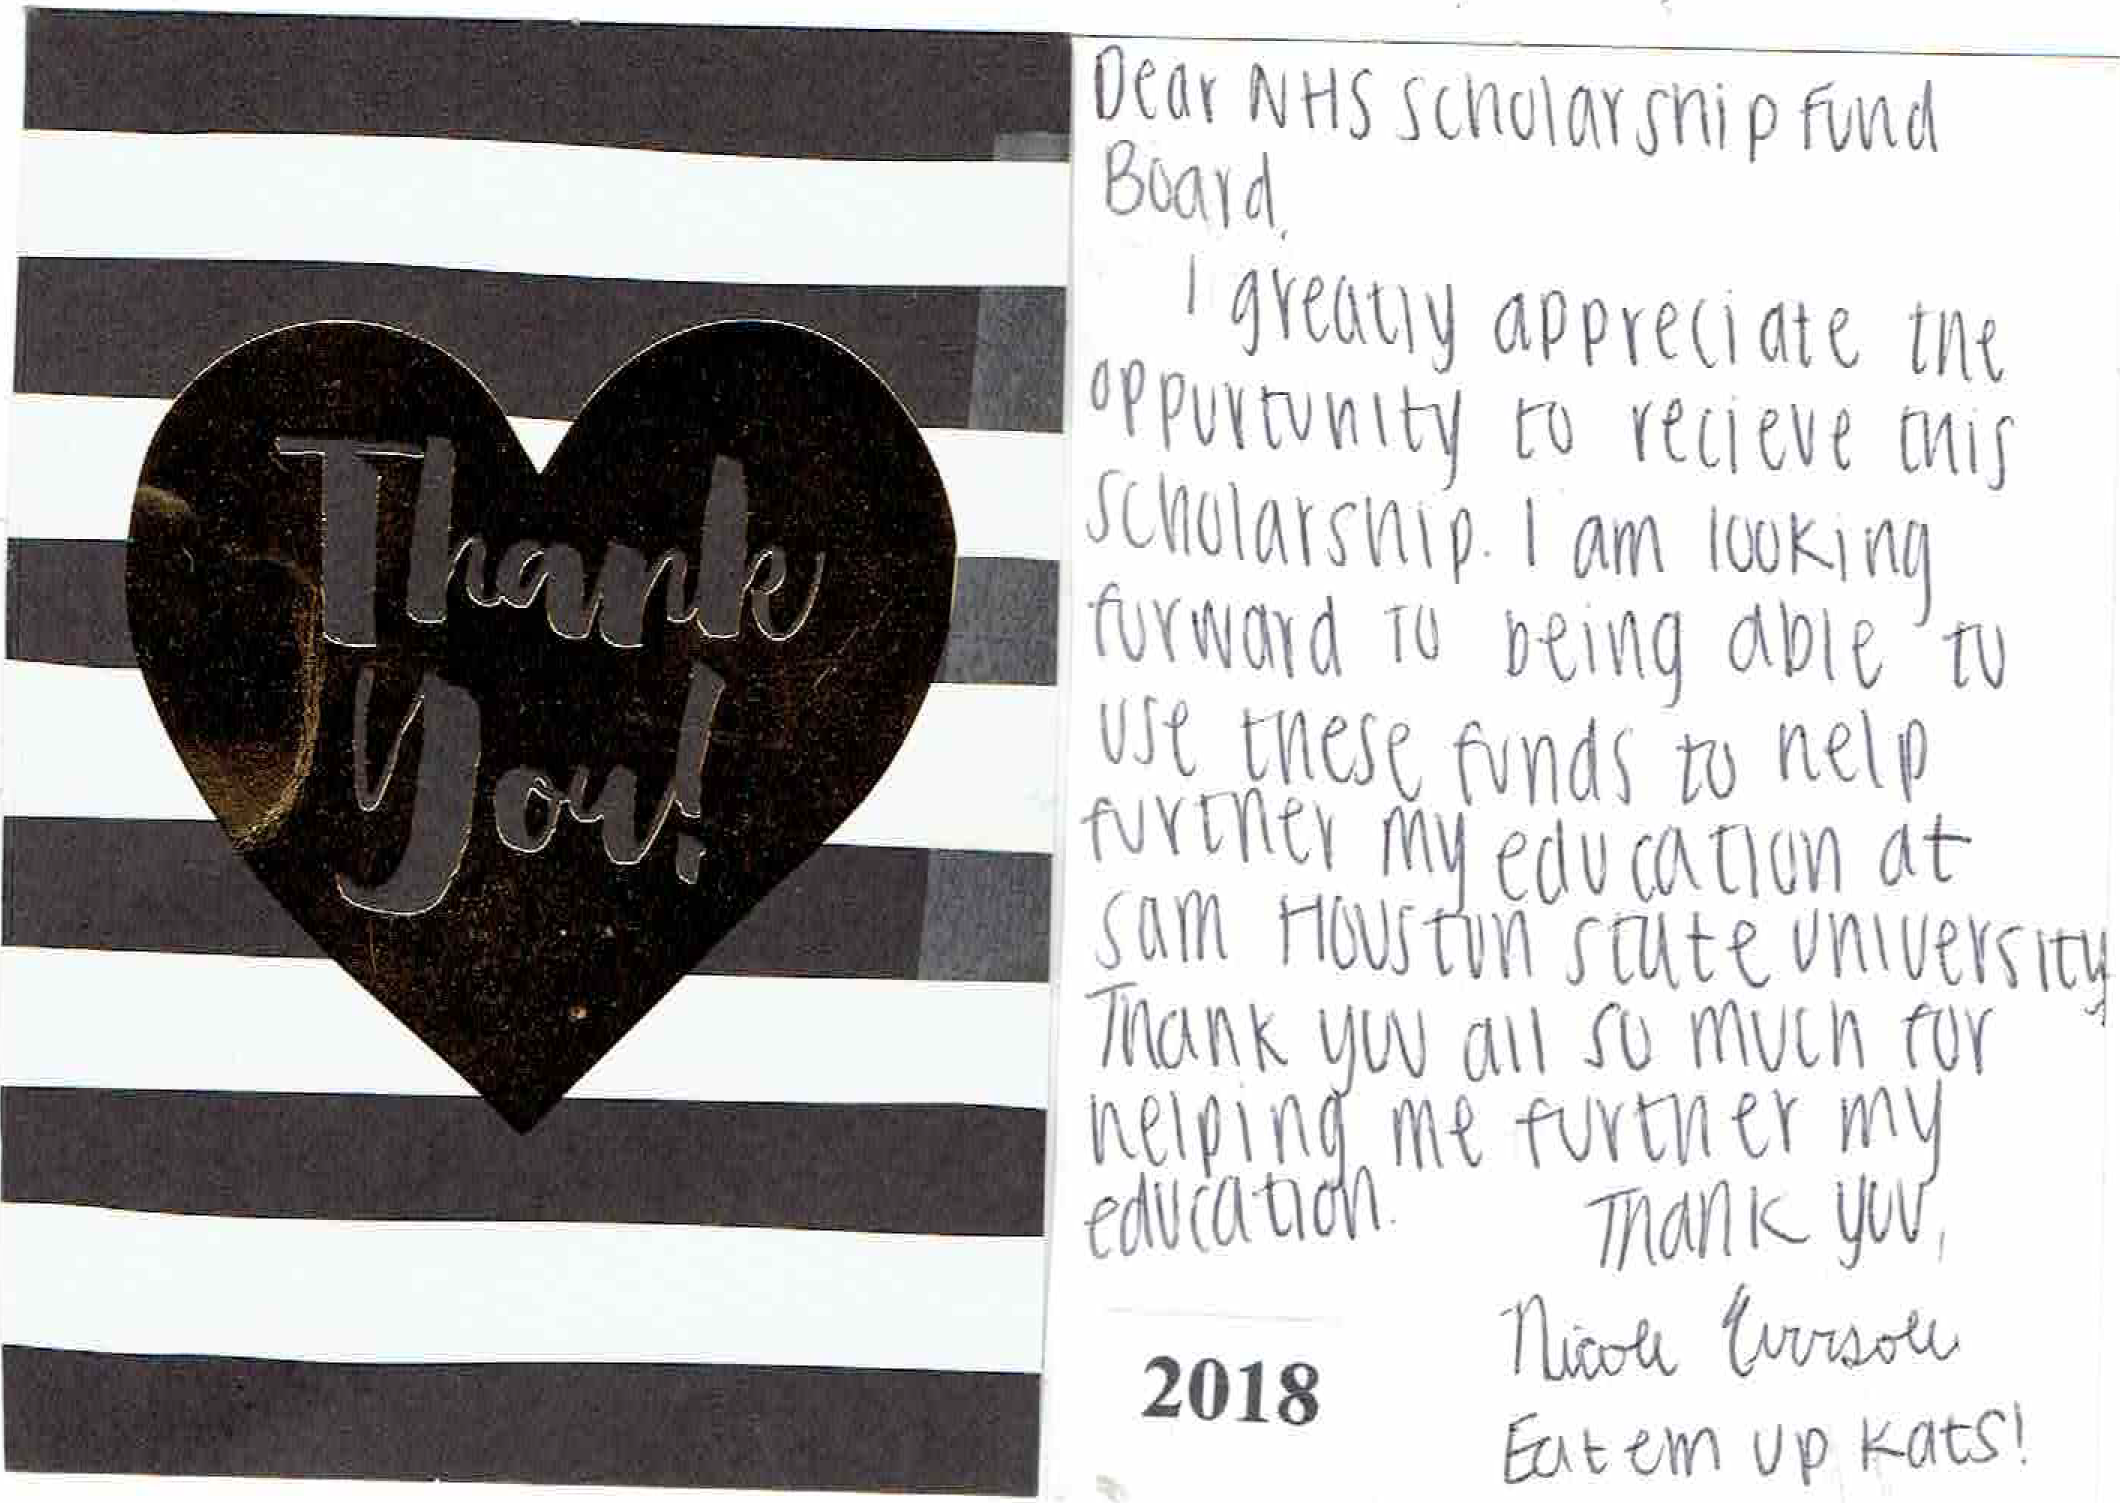 Thank
You!
Dear NHS scholarship Fund
Board,
I greatly appreciate the
oppurtunity to recieve this
scholarship. I am looking
forward to being able to
use these funds to help
further my education at
Sam Houston State University.
Thank you all so much for
helping me further my
education.
Thank you,
Nicole
Eat em up Kats!
2018